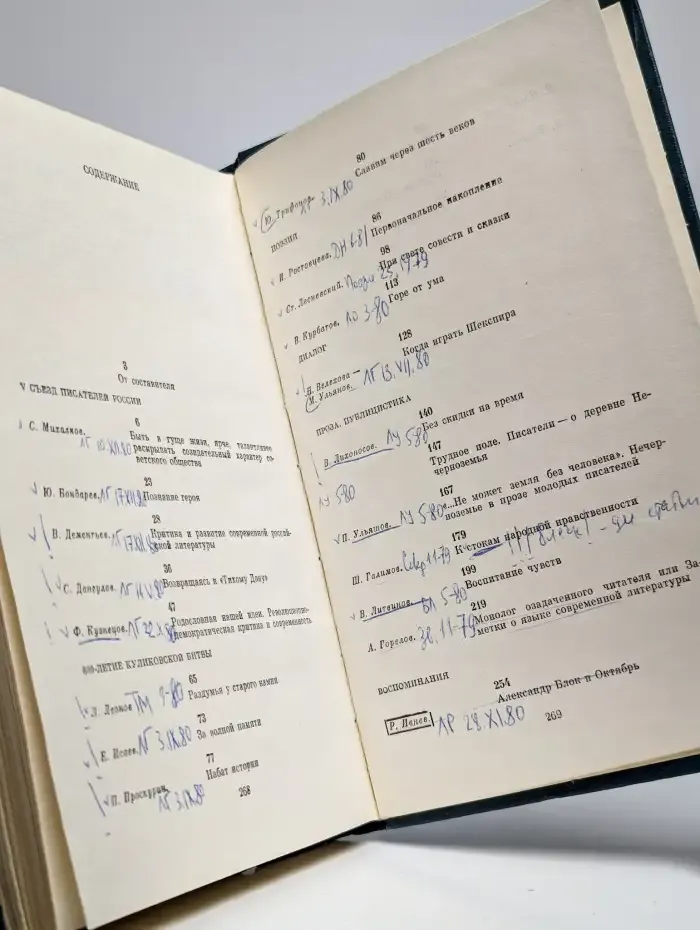 СОДЕРЖАНИЕ
3
От составителя
V СЪЕЗД ПИСАТЕЛЕЙ РОССИИ
6
С. Михалков. ЛГ 10.XII.80 Быть в гуще жизни, ярче, талантливее
раскрывать созидательный характер со-
ветского общества
23
Ю. Бондарев. ЛГ 17.XII.80 Познание героя
28
В. Дементьев. ЛГ 17.XII.80 Критика и развитие современной россий-
ской литературы
36
С. Возвращаясь к «Тихому Дону»
47
Ф. Кузнецов. ЛГ Родословная нашей идеи. Революционно-
демократическая критика и современность
600-ЛЕТИЕ КУЛИКОВСКОЙ БИТВЫ
65
Л. Леонов ТМ 9-80 Раздумья у старого камня
73
Е. Исаев. ЛГ 3.IX.80 За волной памяти
77
П. Проскурин. ЛГ 3.IX.80 Набат истории
268
80
Ю. ЛР 3.IX.80 Славим через шесть веков
ПОЭЗИЯ
86
И. Ростовцева. ДН 6-81 Первоначальное накопление
98
Ст. Лесневский. 25, 1979 При свете совести и сказки
113
В. Курбатов. ЛО 3-80 Горе от ума
ДИАЛОГ
128
Н. Велехова —
М. Ульянов. ЛГ 13.VII.80 Когда играть Шекспира
ПРОЗА. ПУБЛИЦИСТИКА
140
В. Лихоносов. ЛУ 5-80 Без скидки на время
147
ЛУ 5-80 Трудное поле. Писатели — о деревне Не-
черноземья
167
П. Ульяшов. ЛУ 5-80 «...Не может земля без человека». Нечер-
ноземье в прозе молодых писателей
179
Ш. Галимов. Север 11-79 К истокам народной нравственности
199
В. Литвинов. 5-80 Воспитание чувств
219
А. Горелов. Зв. 11-79 Монолог озадаченного читателя или За-
метки о языке современной литературы
ВОСПОМИНАНИЯ
254
Александр Блок и Октябрь
ЛР 28.XI.80
269